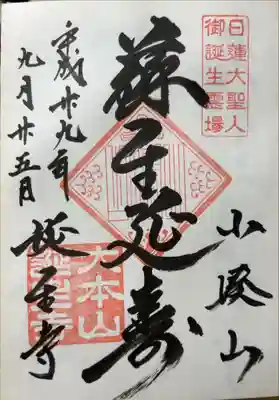 日蓮大聖人
御誕生霊場
小湊山
蘇生延寿
平成廿九年
九月廿五日
誕生寺
大本山
誕生寺